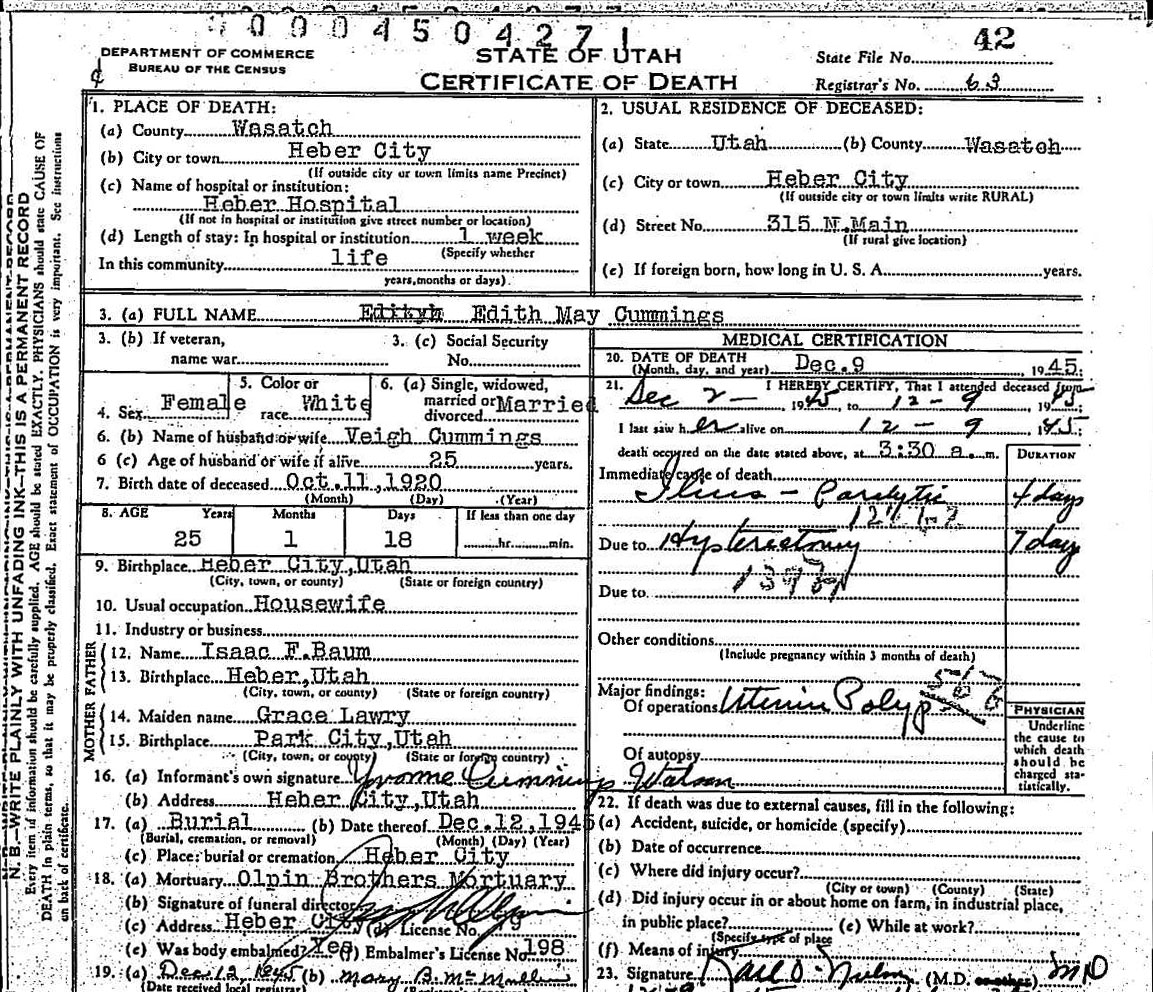 000450427
DEPARTMENT OF COMMERCE
BUREAU OF THE CENSUS
STATE OF UTAH
CERTIFICATE OF DEATH
State File No. 42
Registrar's No. 63
N. B.—WRITE PLAINLY WITH UNFADING INK—THIS IS A PERMANENT RECORD
Every item of information should be carefully supplied. AGE should be stated EXACTLY. PHYSICIANS should state CAUSE OF
DEATH in plain terms, so that it may be properly classified. Exact statement of OCCUPATION is very important. See instructions
on back of certificate.
1. PLACE OF DEATH:
(a) County Wasatch
(b) City or town Heber City
(If outside city or town limits name Precinct)
(c) Name of hospital or institution:
Heber Hospital
(If not in hospital or institution give street number or location)
(d) Length of stay: In hospital or institution 1 week
(Specify whether
In this community life
years, months or days)
2. USUAL RESIDENCE OF DECEASED:
(a) State Utah (b) County Wasatch
(c) City or town Heber City
(If outside city or town limits write RURAL)
(d) Street No. 315 N.Main
(If rural give location)
(e) If foreign born, how long in U. S. A. years.
3. (a) FULL NAME Edith May Cummings
3. (b) If veteran,
name war
3. (c) Social Security
No.
4. Sex Female
5. Color or
race White
6. (a) Single, widowed,
married or
divorced Married
6. (b) Name of husband or wife Veigh Cummings
6 (c) Age of husband or wife if alive 25 years.
7. Birth date of deceased Oct.11,1920
(Month) (Day) (Year)
8. AGE Years Months Days If less than one day
25 1 18 hr. min.
9. Birthplace Heber City,Utah
(City, town, or county) (State or foreign country)
10. Usual occupation Housewife
11. Industry or business
FATHER
12. Name Isaac F.Baum
13. Birthplace Heber,Utah
(City, town, or county) (State or foreign country)
MOTHER
14. Maiden name Grace Lawry
15. Birthplace Park City,Utah
(City, town, or county) (State or foreign country)
16. (a) Informant's own signature Yvonne Cummings Watson
(b) Address Heber City,Utah
17. (a) Burial (b) Date thereof Dec.12,1945
(Burial, cremation, or removal) (Month) (Day) (Year)
(c) Place: burial or cremation Heber City
18. (a) Mortuary Olpin Brothers Mortuary
(b) Signature of funeral director
(c) Address Heber City (d) License No. 79
(e) Was body embalmed? Yes (f) Embalmer's License No. 198
19. (a) Dec 12 1945 (b) Mary B. McMullin
(Date received local registrar)
MEDICAL CERTIFICATION
20. DATE OF DEATH
(Month, day, and year) Dec.9 1945
21. I HEREBY CERTIFY, That I attended deceased from
Dec 2 — 1945, to 12 - 9 1945;
I last saw her alive on 12 - 9 1945
death occurred on the date stated above, at 3:30 a. m.
DURATION
Immediate cause of death
Ileus - Paralytic 4 days
Due to Hysterectomy 7 days
Due to
Other conditions
(Include pregnancy within 3 months of death)
Major findings:
Of operations Uterine Polyp
Of autopsy
PHYSICIAN
Underline
the cause to
which death
should be
charged sta-
tistically.
22. If death was due to external causes, fill in the following:
(a) Accident, suicide, or homicide (specify)
(b) Date of occurrence
(c) Where did injury occur?
(City or town) (County) (State)
(d) Did injury occur in or about home on farm, in industrial place,
in public place? (e) While at work?
(Specify type of place
(f) Means of injury
23. Signature (M.D. or other) MD